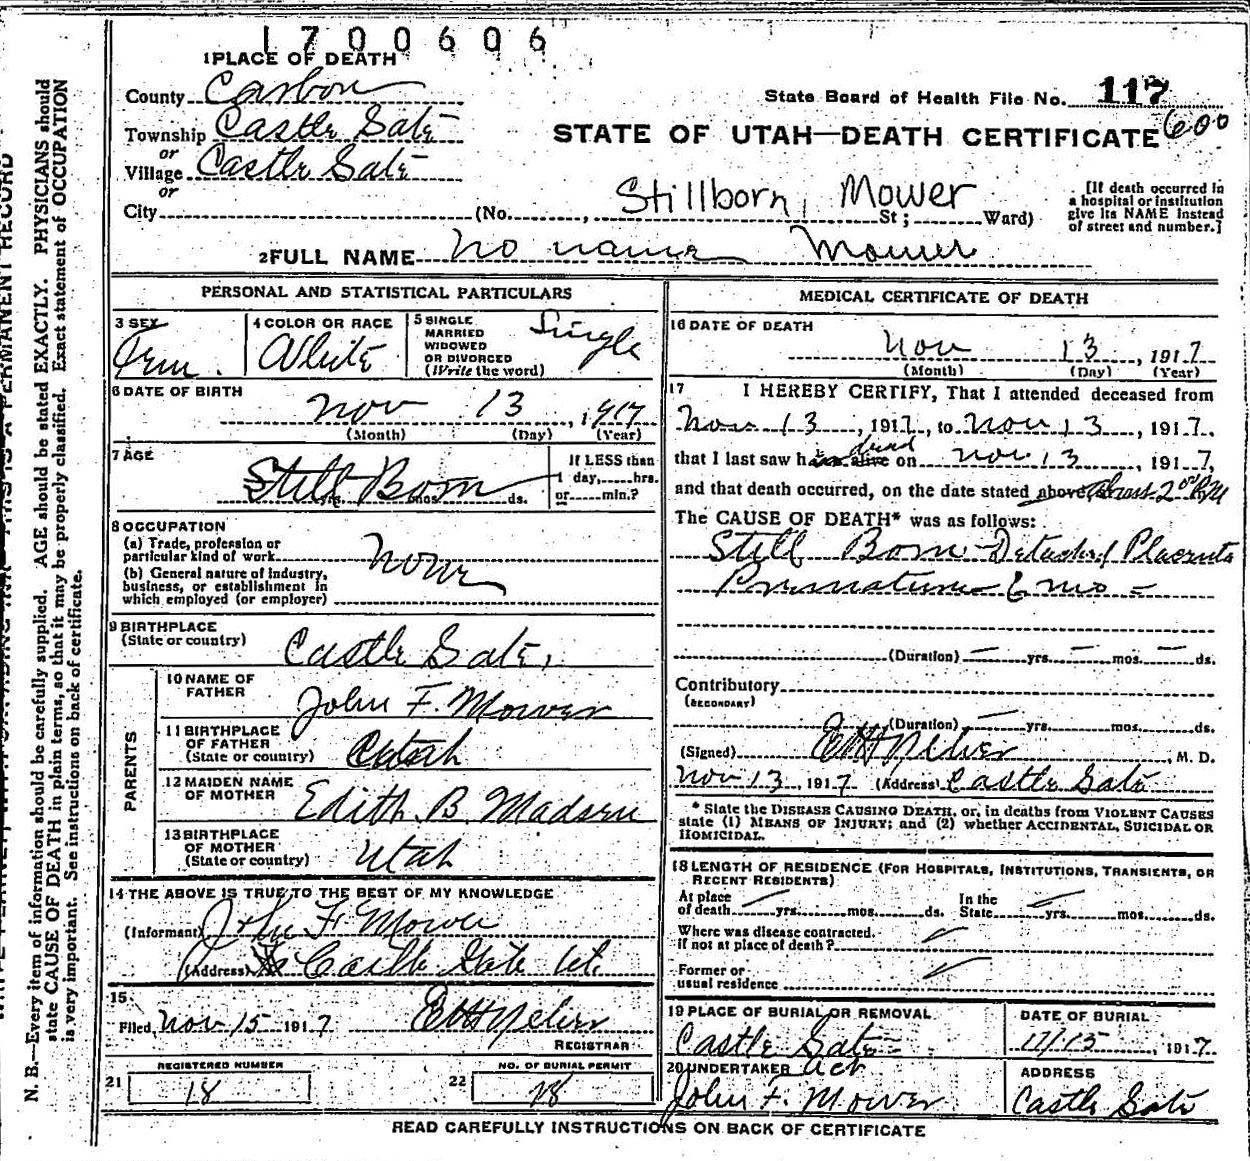 1700606
1 PLACE OF DEATH
County Carbon
State Board of Health File No. 117
Township Castle Gate
STATE OF UTAH—DEATH CERTIFICATE 600
or
Village Castle Gate
or
City (No. , St; Ward)
Stillborn, Mower
[If death occurred in
a hospital or institution
give its NAME instead
of street and number.]
2 FULL NAME No name Mower
PERSONAL AND STATISTICAL PARTICULARS
3 SEX
Fem.
4 COLOR OR RACE
White
5 SINGLE
MARRIED
WIDOWED
OR DIVORCED
(Write the word)
Single
6 DATE OF BIRTH
Nov 13, 1917
(Month) (Day) (Year)
7 AGE
Still Born
yrs. mos. ds.
If LESS than
1 day, hrs.
or min.?
8 OCCUPATION
(a) Trade, profession or
particular kind of work None
(b) General nature of Industry,
business, or establishment in
which employed (or employer)
9 BIRTHPLACE
(State or country) Castle Gate,
PARENTS
10 NAME OF
FATHER John F. Mower
11 BIRTHPLACE
OF FATHER
(State or country) Utah
12 MAIDEN NAME
OF MOTHER Edith B. Madsen
13 BIRTHPLACE
OF MOTHER
(State or country) Utah
14 THE ABOVE IS TRUE TO THE BEST OF MY KNOWLEDGE
(Informant) John F. Mower
(Address) Castle Gate Ut.
15
Filed Nov 15 1917
REGISTRAR
REGISTERED NUMBER
21 18
NO. OF BURIAL PERMIT
22 18
MEDICAL CERTIFICATE OF DEATH
16 DATE OF DEATH
Nov 13, 1917
(Month) (Day) (Year)
17 I HEREBY CERTIFY, That I attended deceased from
Nov 13, 1917, to Nov 13, 1917,
that I last saw h alive dead on Nov 13, 1917,
and that death occurred, on the date stated above, at 2 PM
The CAUSE OF DEATH* was as follows:
Still Born - Detached Placenta
Premature 6 mo -
(Duration) — yrs. — mos. — ds.
Contributory
(SECONDARY)
(Duration) — yrs. mos. ds.
(Signed) , M. D.
Nov 13, 1917 (Address) Castle Gate
* State the DISEASE CAUSING DEATH, or, in deaths from VIOLENT CAUSES
state (1) MEANS OF INJURY; and (2) whether ACCIDENTAL, SUICIDAL OR
HOMICIDAL.
18 LENGTH OF RESIDENCE (FOR HOSPITALS, INSTITUTIONS, TRANSIENTS, OR
RECENT RESIDENTS)
At place
of death yrs. mos. ds.
In the
State yrs. mos. ds.
Where was disease contracted.
if not at place of death?
Former or
usual residence
19 PLACE OF BURIAL OR REMOVAL
Castle Gate
DATE OF BURIAL
11/15, 1917
20 UNDERTAKER act
John F. Mower
ADDRESS
Castle Gate
READ CAREFULLY INSTRUCTIONS ON BACK OF CERTIFICATE
N. B.—Every item of information should be carefully supplied. AGE should be stated EXACTLY. PHYSICIANS should
state CAUSE OF DEATH in plain terms, so that it may be properly classified. Exact statement of OCCUPATION
is very important. See instructions on back of certificate.